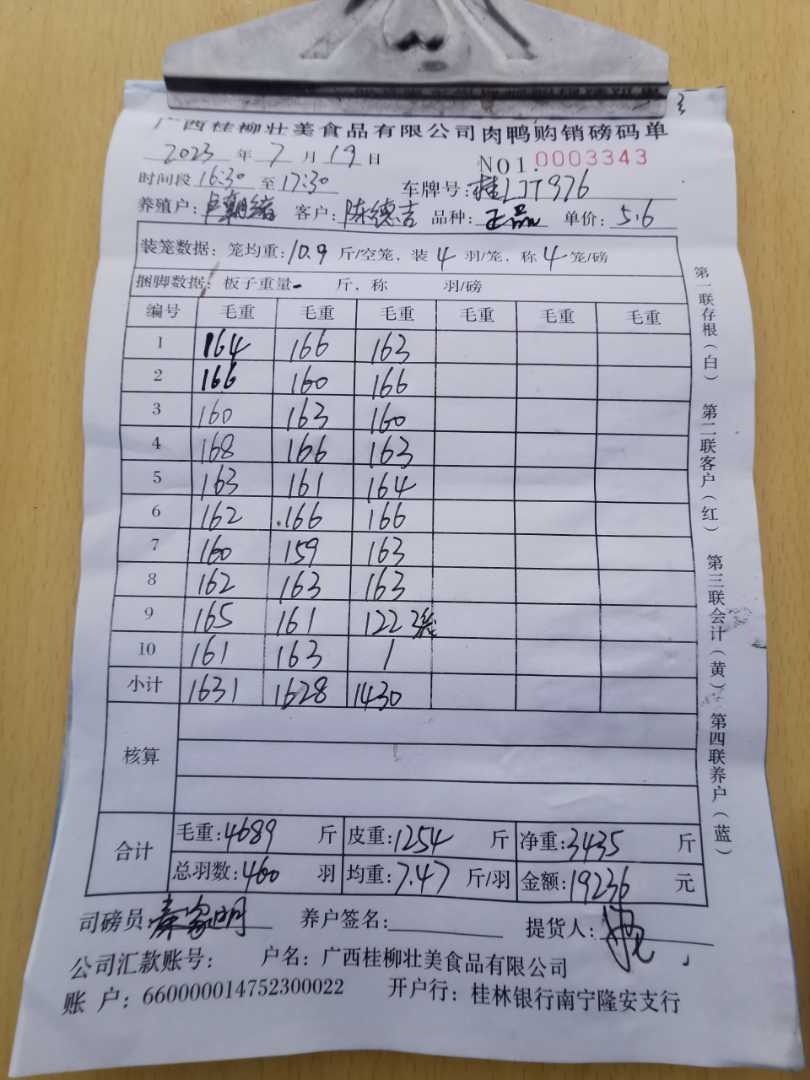 广西桂柳壮美食品有限公司肉鸭购销磅码单
2023 年 7 月 19 日 NO1. 0003343
时间段 16:30 至 17:30 车牌号: 桂LJT976
养殖户: 客户: 陈德吉 品种: 正品 单价: 5.6
装笼数据: 笼均重: 10.9 斤/空笼, 装 4 羽/笼, 称 4 笼/磅
捆脚数据: 板子重量 - 斤, 称 羽/磅
编号 毛重 毛重 毛重 毛重 毛重 毛重
1 164 166 163
2 166 160 166
3 160 163 160
4 168 166 163
5 163 161 164
6 162 166 166
7 160 159 163
8 162 163 163
9 165 161 122 3笼
10 161 163 /
小计 1631 1628 1430
核算
合计 毛重: 4689 斤 皮重: 1254 斤 净重: 3435 斤
总羽数: 460 羽 均重: 7.47 斤/羽 金额: 19236 元
司磅员 秦家明 养户签名: 提货人:
公司汇款账号: 户名: 广西桂柳壮美食品有限公司
账 户: 660000014752300022 开户行: 桂林银行南宁隆安支行
第一联存根(白) 第二联客户(红) 第三联会计(黄) 第四联养户(蓝)